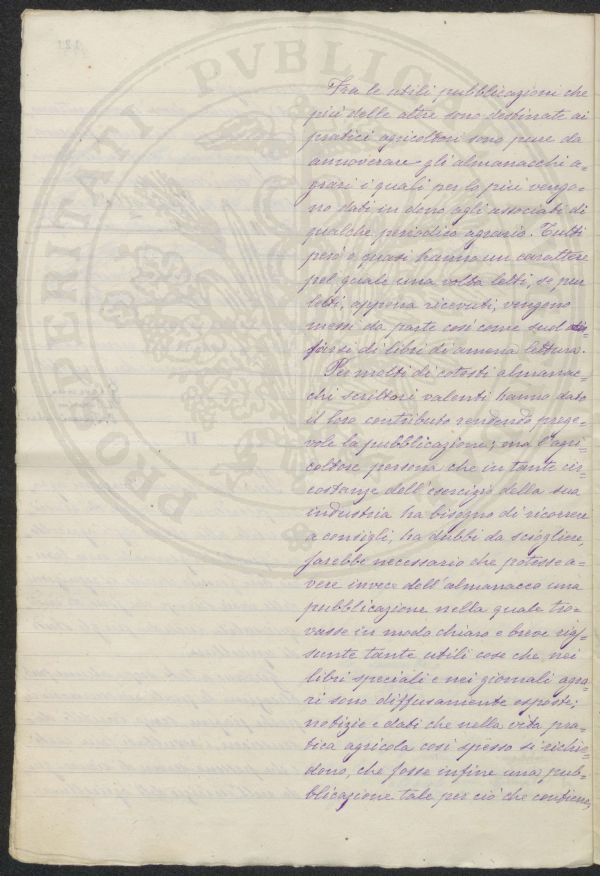 Fra le utili pubblicazioni che
più delle altre sono destinate ai
pratici agricoltori sono pure da
annoverare gli almanacchi a-
grari i quali per lo più vengo-
no dati in dono agli associati di
qualche periodico agrario. Tutti
però o quasi hanno un carattere
pel quale una volta letti, se pur
letti, appena ricevuti, vengono
messi da parte così come suol
farsi di libri di amena lettura.
Per molti di cotesti almanac-
chi scrittori valenti hanno dato
il loro contributo rendendo prege-
vole la pubblicazione; ma l'agri-
coltore persona che in tante cir-
costanze dell'esercizio della sua
industria ha bisogno di ricorrere
a consigli, ha dubbi da sciogliere,
sarebbe necessario che potesse a-
vere invece dell'almanacco una
pubblicazione nella quale tro-
vasse in modo chiaro e breve rias-
sunte tante utili cose che nei
libri speciali e nei giornali agra-
ri sono diffusamente esposte;
notizie e dati che nella vita pra-
tica agricola così spesso si richie-
dono, che fosse infine una pub-
blicazione tale per ciò che contiene,
PROSPERITATI PVBLICA